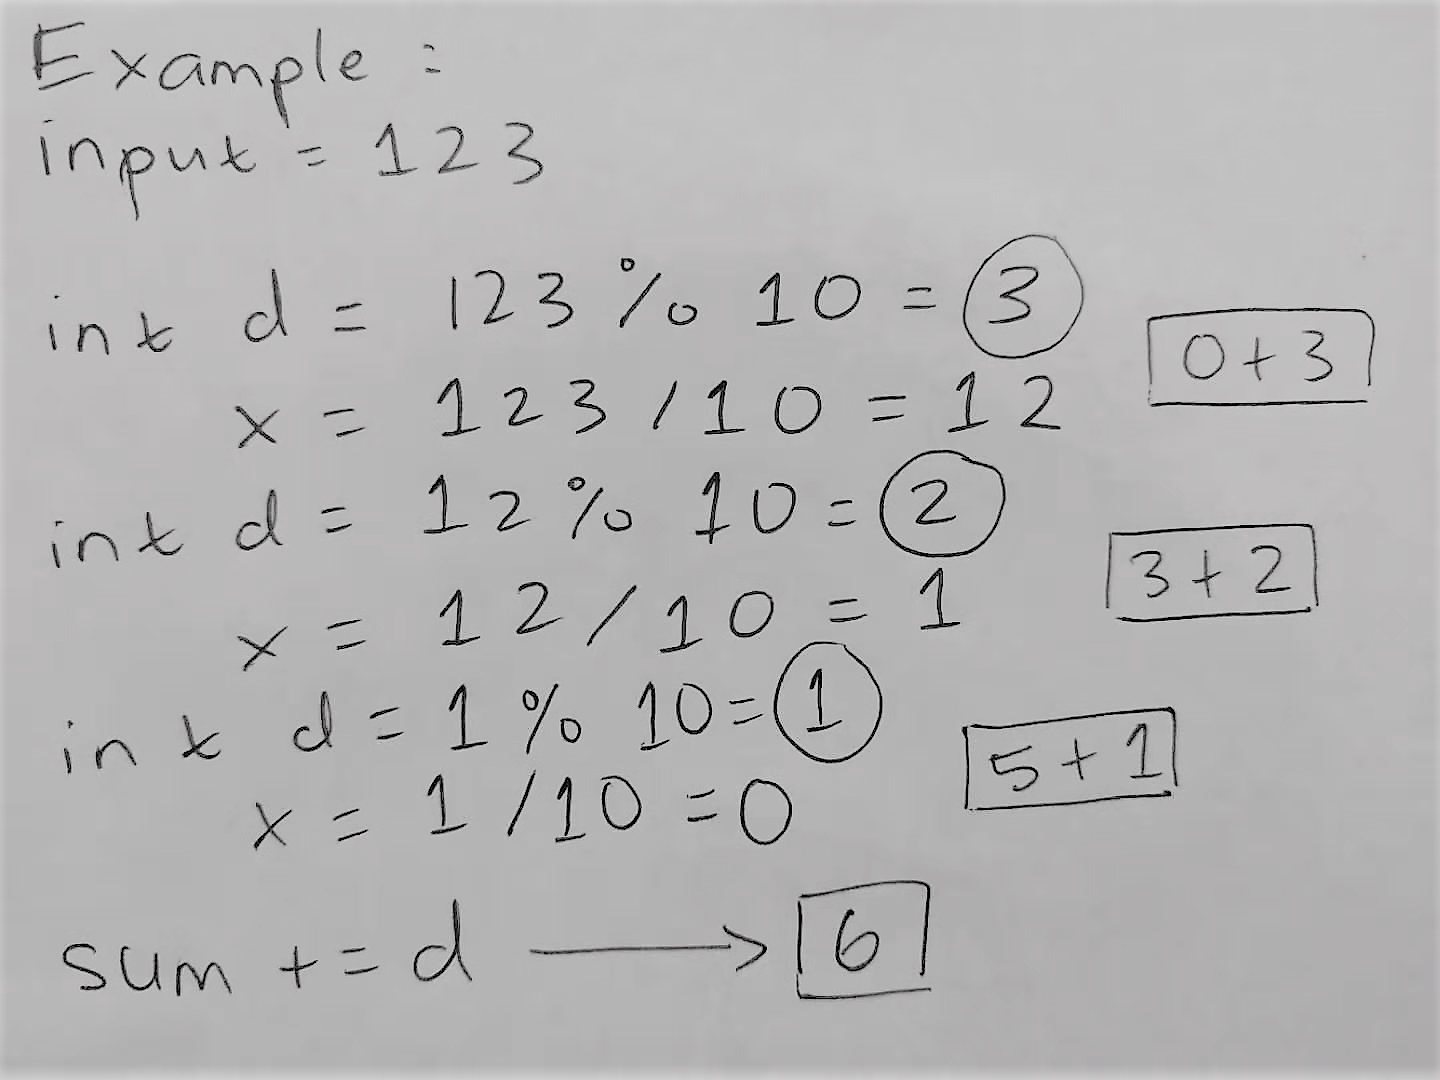 Example :
input = 123
int d = 123 % 10 = 3
0 + 3
x = 123 / 10 = 12
int d = 12 % 10 = 2
3 + 2
x = 12 / 10 = 1
int d = 1 % 10 = 1
5 + 1
x = 1 / 10 = 0
sum += d → 6